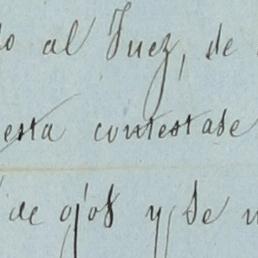 do al Juez, de
esta contestase
de ojos y se